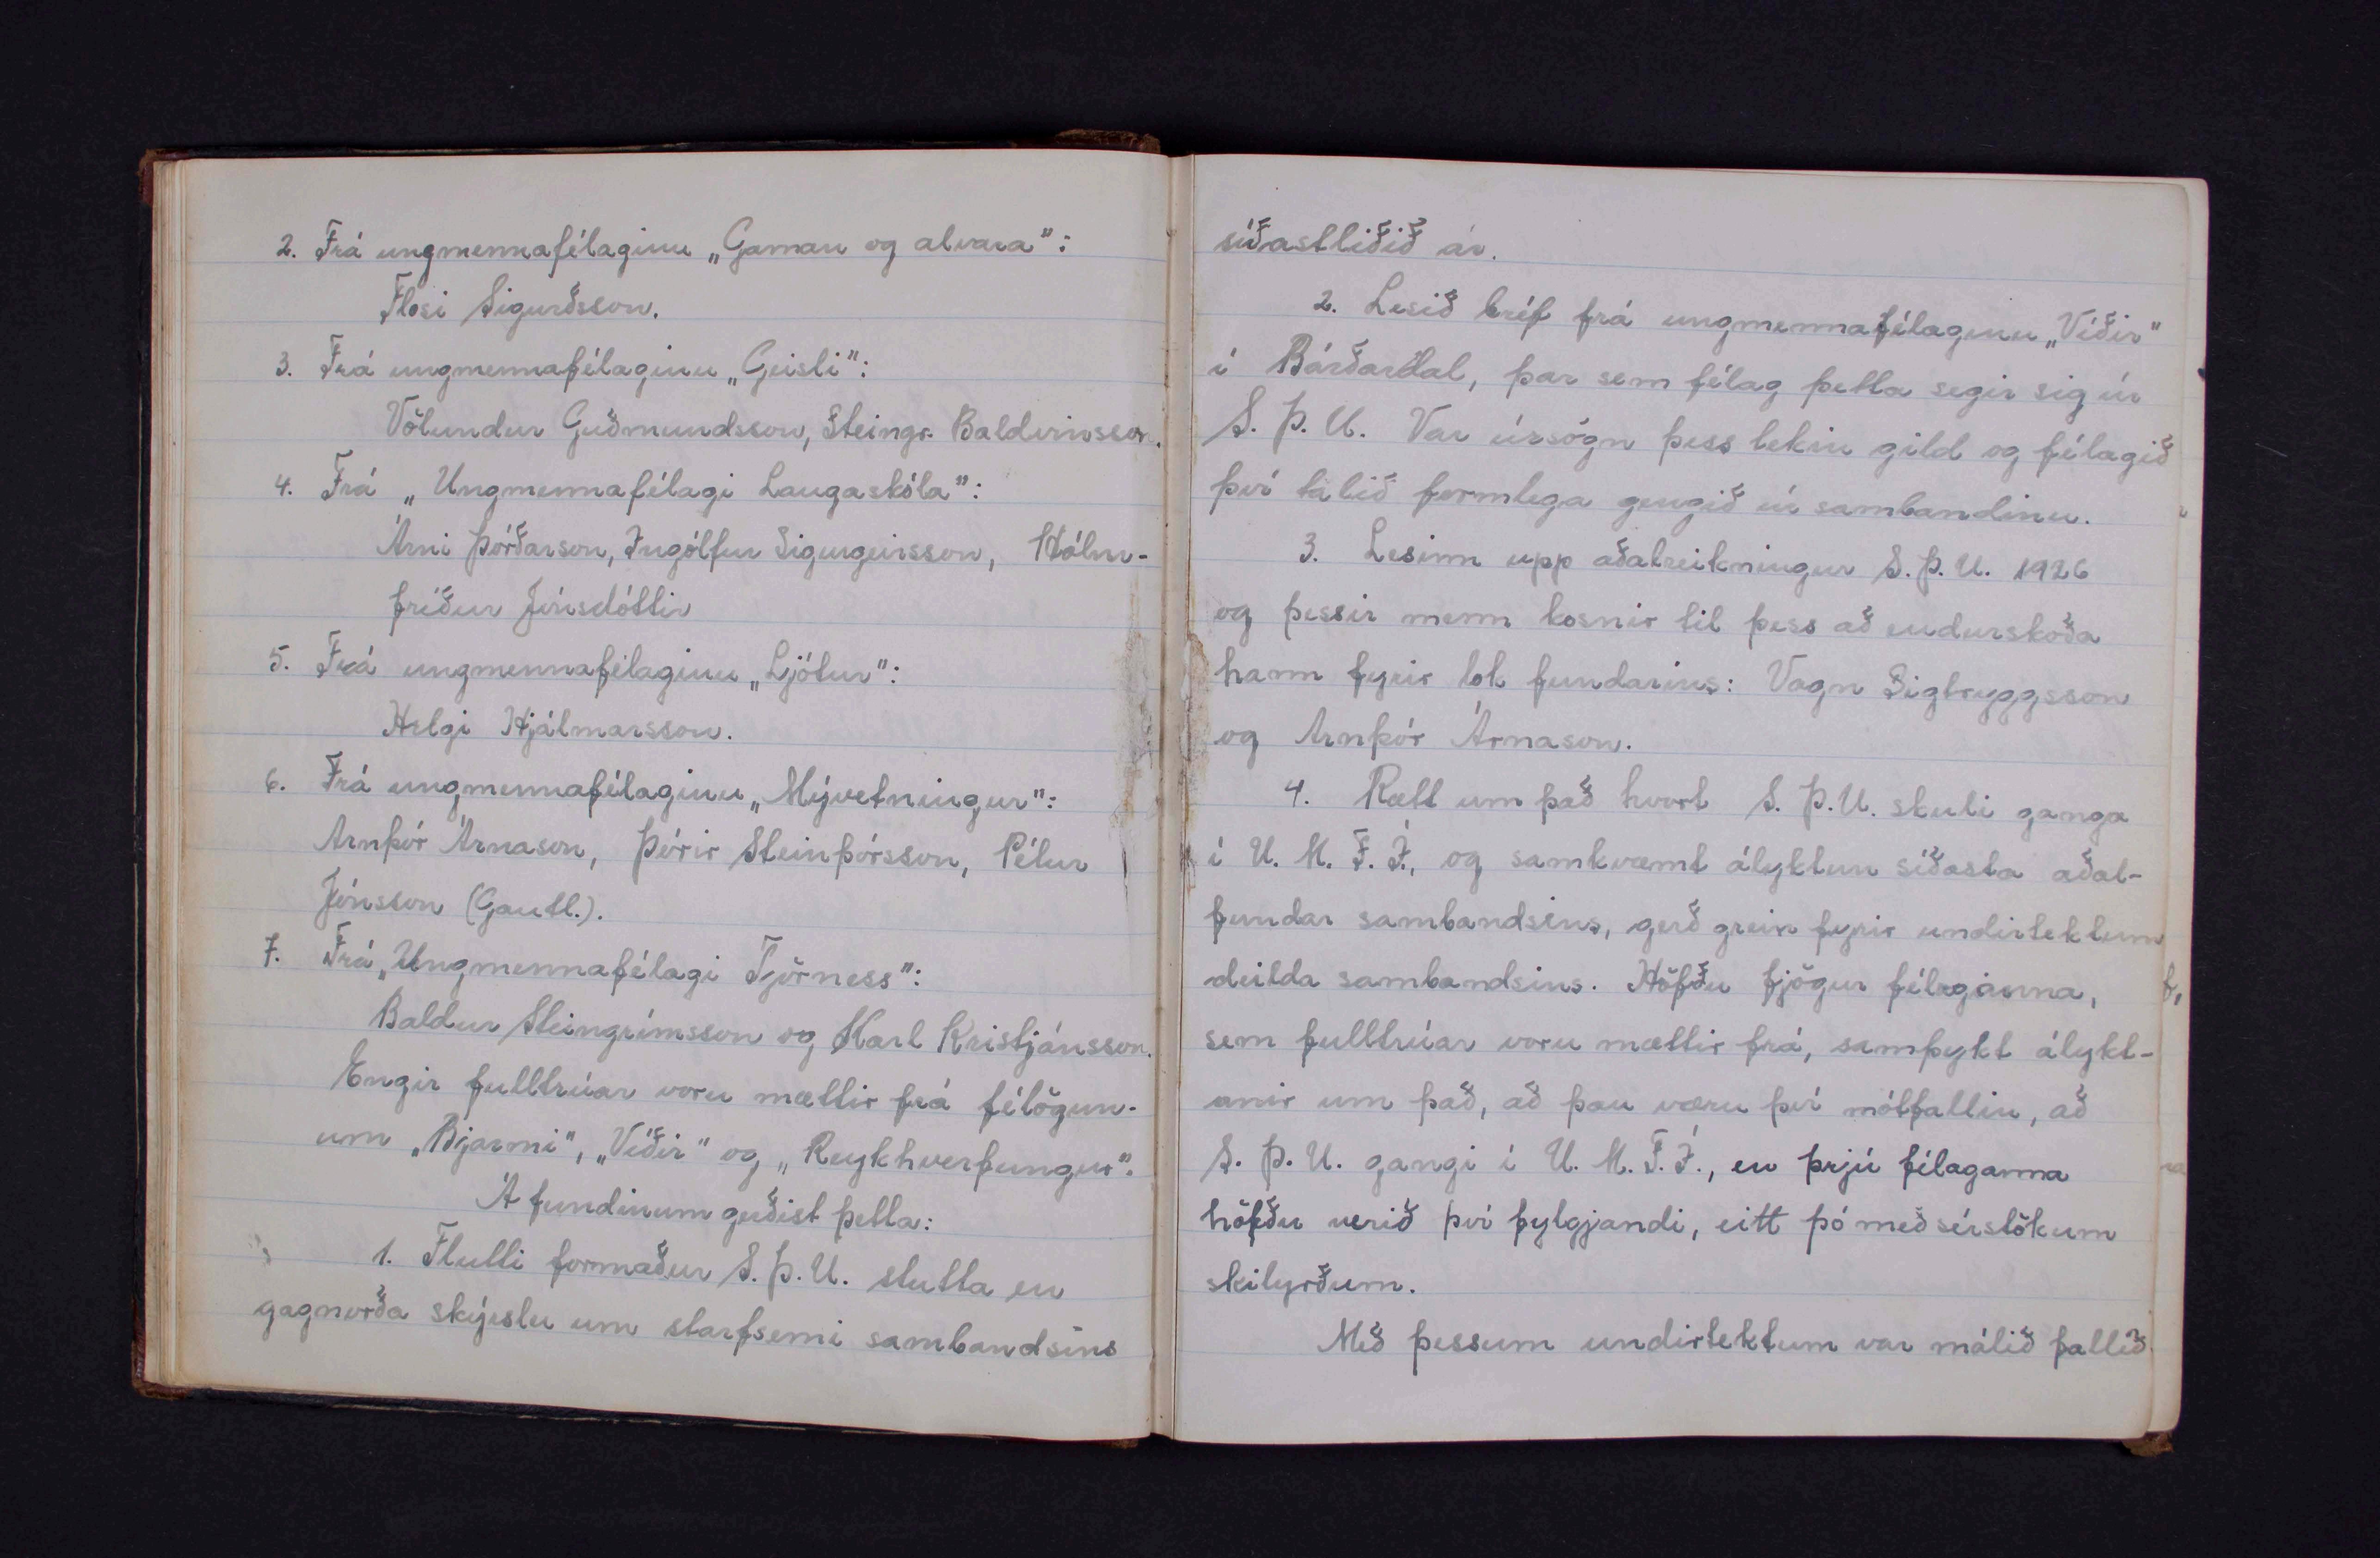 2. Frá ungmennafélaginu „Gaman og alvara":
Flosi Sigurðsson.
3. Frá ungmennafélaginu „Geisli":
Völundur Guðmundsson, Steingr. Baldvinsson.
4. Frá „Ungmennafélagi Laugaskóla":
Árni Þórðarson, Ingólfur Sigurgeirsson, Hólm-
fríður Jónsdóttir
5. Frá ungmennafélaginu „Ljótur":
Helgi Hjálmarsson.
6. Frá ungmennafélaginu „Mývetningur":
Arnþór Árnason, Þórir Steinþórsson, Pétur
Jónsson (Gautl.).
7. Frá „Ungmennafélagi Tjörness":
Baldur Steingrímsson og Karl Kristjánsson.
Engir fulltrúar voru mættir frá félögun-
um „Bjarmi", „Víðir" og „Reykhverfungur".
Á fundinum gerðist þetta:
1. Flutti formaður S.Þ.U. stutta en
gagnorða skýrslu um starfsemi sambandsins
síðastliðið ár.
2. Lesið bréf frá ungmennafélaginu „Víðir"
í Bárðardal, þar sem félag þetta segir sig úr
S.Þ.U. Var úrsögn þess tekin gild og félagið
því talið formlega gengið úr sambandinu.
3. Lesinn upp aðalreikningur S.Þ.U. 1926
og þessir menn kosnir til þess að endurskoða
hann fyrir lok fundarins: Vagn Sigtryggsson
og Arnþór Árnason.
4. Rætt um það hvort S.Þ.U. skuli ganga
í U.M.F.Í., og samkvæmt ályktun síðasta aðal-
fundar sambandsins, gerð grein fyrir undirtektum
deilda sambandsins. Höfðu fjögur félaganna,
sem fulltrúar voru mættir frá, samþykt álykt-
anir um það, að þau væru því mótfallin, að
S.Þ.U. gangi í U.M.F.Í., en þrjú félaganna
höfðu verið því fylgjandi, eitt þó með sérstökum
skilyrðum.
Með þessum undirtektum var málið fallið